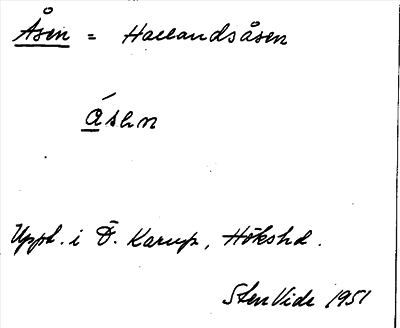 Åsen = Hallandsåsen
åsen
Uppt. i Ö. Karup, Hökshd.
Sten Vide 1951